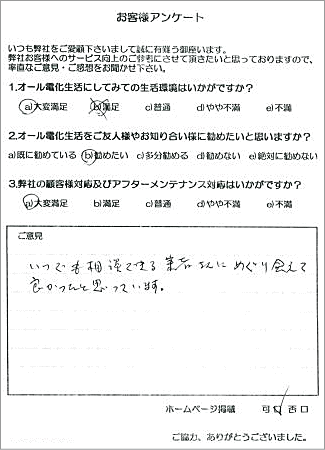 お客様アンケート
いつも弊社をご愛顧下さいまして誠に有難う御座います。
弊社お客様へのサービス向上のご参考にさせて頂きたいと思っておりますので、
率直なご意見・ご感想をお聞かせ下さい。
1.オール電化生活にしてみての生活環境はいかがですか?
a)大変満足 b)満足 c)普通 d)やや不満 e)不満
2.オール電化生活をご友人様やお知り合い様に勧めたいと思いますか?
a)既に勧めている b)勧めたい c)多分勧める d)勧めない e)絶対に勧めない
3.弊社の顧客様対応及びアフターメンテナンス対応はいかがですか?
a)大変満足 b)満足 c)普通 d)やや不満 e)不満
ご意見
いつでも相談できる業者さんにめぐり会えて
良かったと思っています。
ホームページ掲載 可 否 口
ご協力、ありがとうございました。